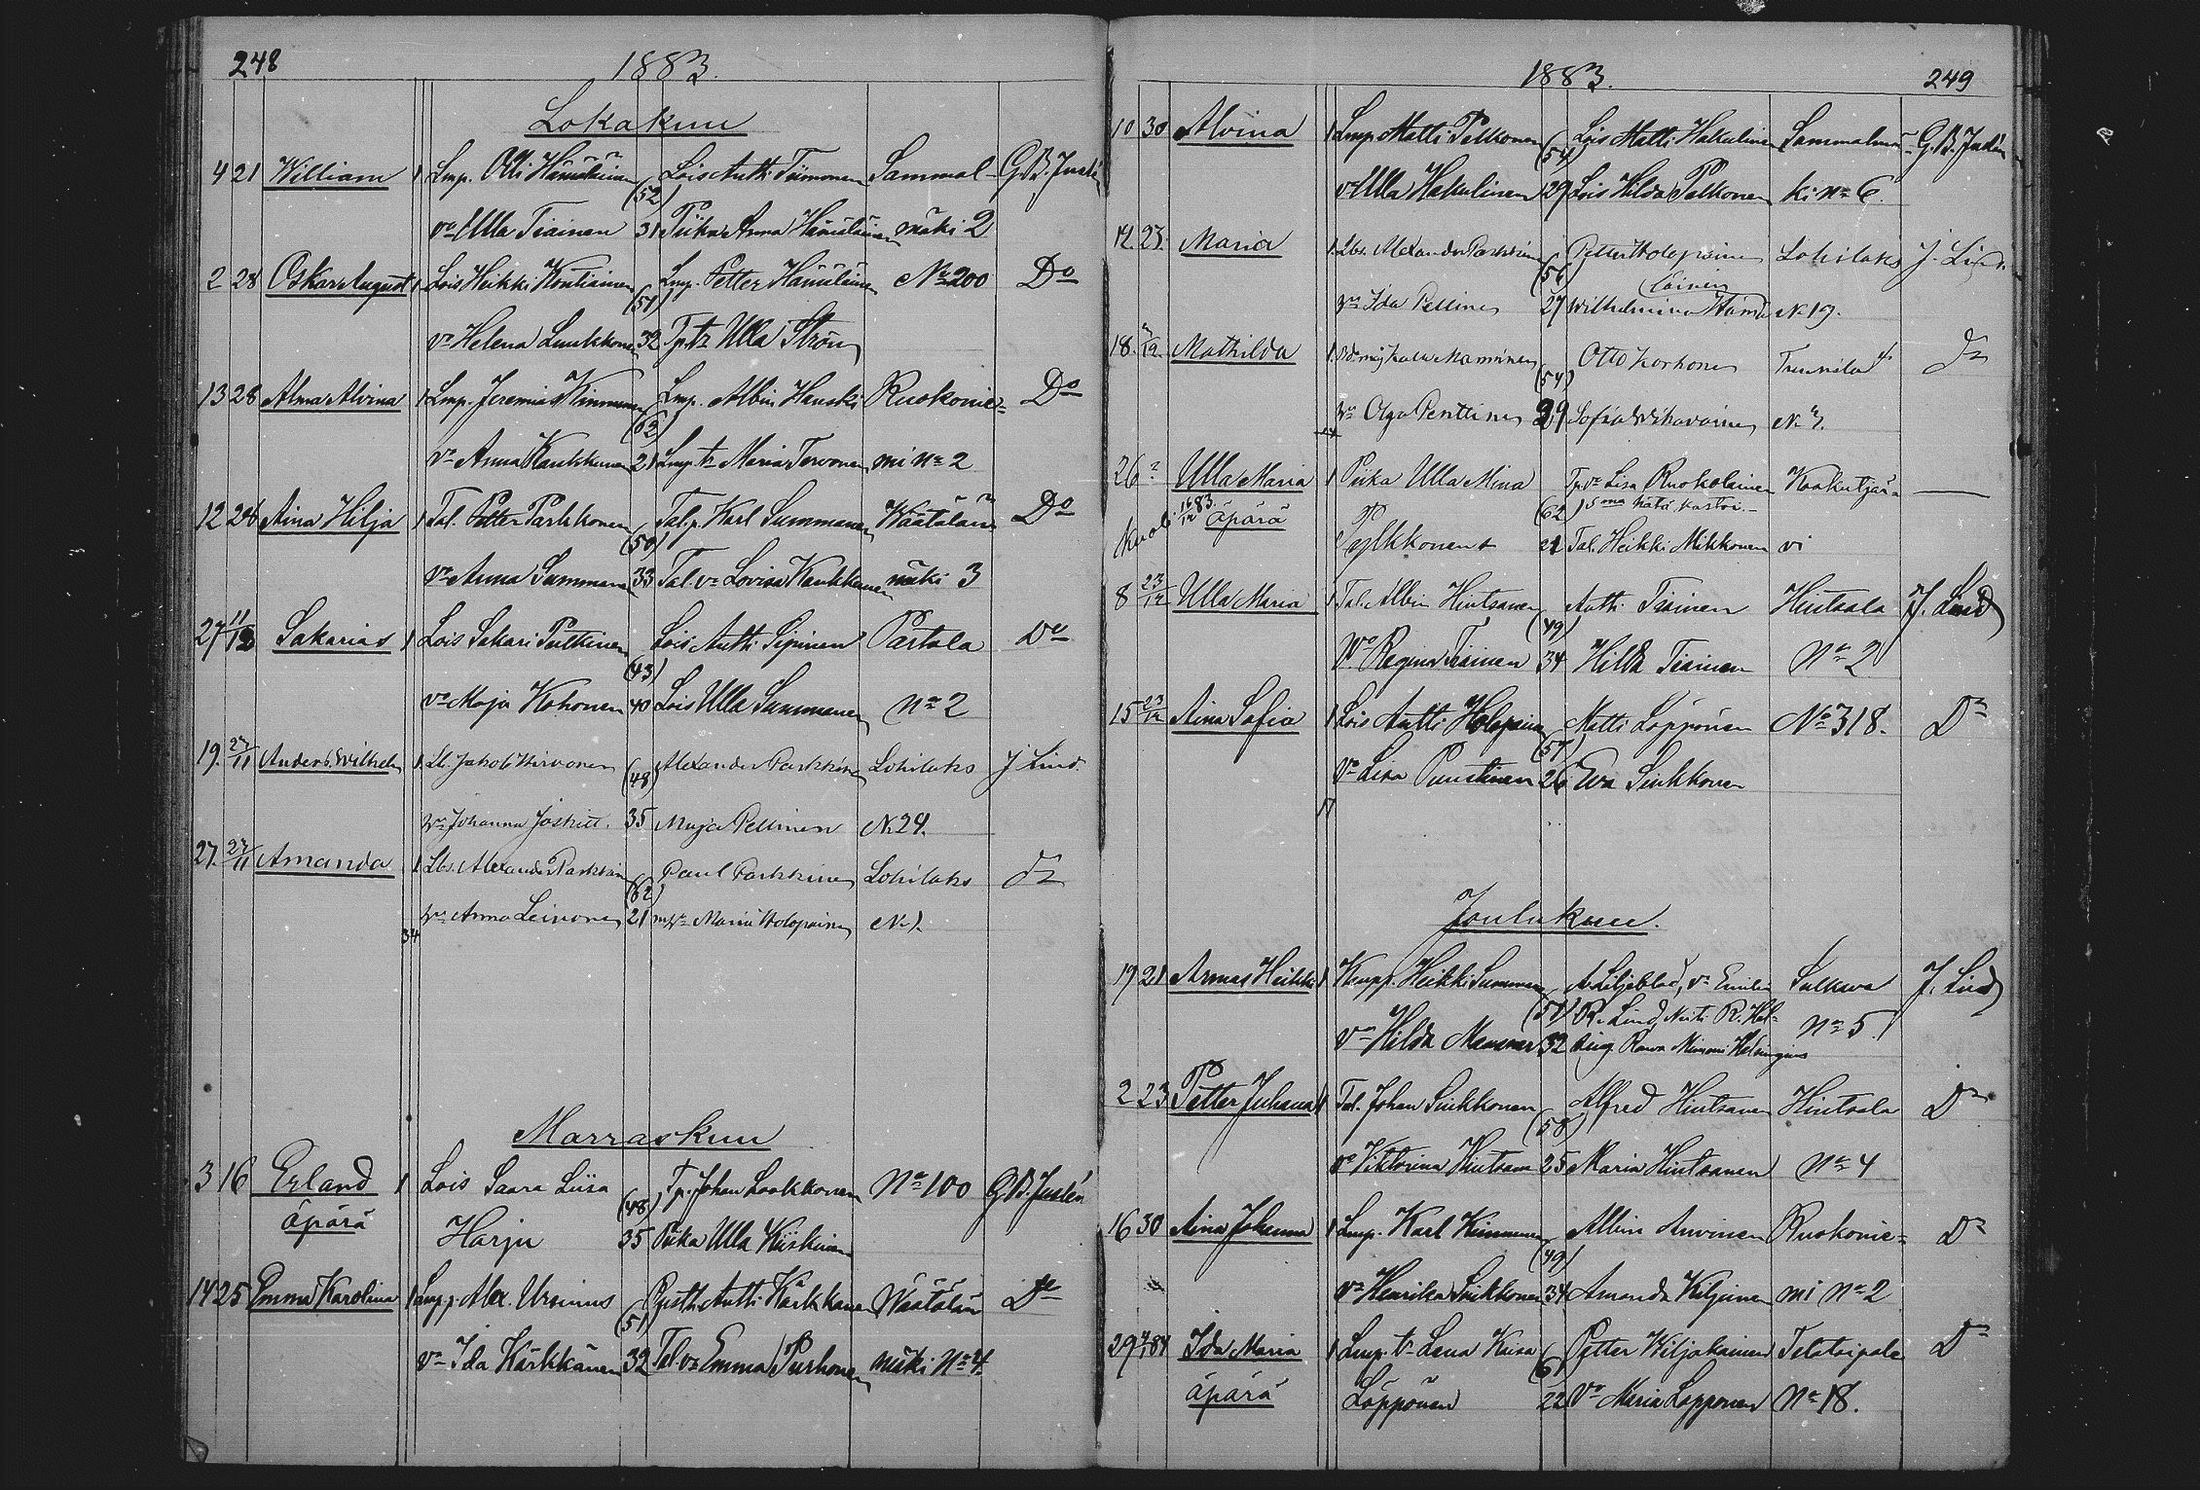 248
1883.
Lokakuu
4 21 William 1 Lmp. Olli Hämäläinen (52) Lois Antti Timonen Sammal- G.B. Justén
vo Ulla Tiainen 31 Piika Anna Hämäläinen mäki 2
2 28 Oskar August 1 Lois Heikki Kontiainen (51) Lmp. Petter Hämäläinen No 200 Do
vo Helena Luukkonen 32 Tp. tr Ulla Ström
13 28 Alma Alvina 1 Lmp. Jeremias Kimmunen (62) Lmp. Albin Hauski Ruokonie- Do
vo Anna Kaukkunen 21 Lmp. tr Maria Tervonen mi No 2
12 28 Aina Hilja 1 Tal. Petter Parkkonen (50) Tal. p. Karl Summanen Väätälän Do
vo Anna Summanen 33 Tal. vo Lovisa Kaukkunen mäki 3
27 11/12 Sakarias 1 Lois Sakari Pulkkinen (43) Lois Antti Sipinen Partala Do
vo Maja Kohonen 40 Lois Ulla Summanen No 2
19. 27/11 Anders Wilhelm 1 Jakob Hirvonen (48) Alexander Parkkinen Lohilaks J. Lind.
vo Johanna 35 Maja Pellinen N. 24.
27. 27/11 Amanda 1 Lbs. Alexander Parkkinen (62) Paul Parkkinen Lohilaks do
vo Anna Leivonen 21 Maria Holopainen N.
34
Marraskuu
3 16 Erland 1 Lois Saara Liisa (48) Tp. Johan Laakkonen No 100 G.B. Justén
äpärä Harju 35 Piika Ulla Kiiskinen
14 25 Emma Karolina 1 Lmp. Alex. Ursinus (51) Antti Kärkkänen Väätälän Do
vo Ida Kärkkänen 32 Tal. vo Emma Purhonen mäki No 4.
1883.
249
10 30 Alvina 1 Lmp. Matti Pelkonen (54) Lois Matti Hakulinen Sammalmä- G.B. Justén
vo Ulla Hakulinen 29 Lois Hilda Pelkonen ki No 6.
12. 23. Maria 1 Lbs. Alexander Parkkinen (56) Petter Holopainen Lohilaks J. Lind.
vo Ida Pellinen 27 Wilhelmina Hämä(läinen N. 19.
18. Mathilda 1 Manninen (54) Otto Korhonen do
vo Olga Penttinen 29 Sofia N.
26 Ulla Maria 1 Piika Ulla Miina (62) Tp. vo Lisa Ruokolainen Kaakutjär-
Kuoli 16/12 83. äpärä hätä kastoi.
Pylkkönen 21 Tal. Heikki Mikkonen vi
8 23/12 Ulla Maria 1 Tal. Albin Hintsanen (49) Antti Tiainen Hintsala J. Lind
Wo Regina Tiainen 34 Hilda Tiainen No 2
15 23/12 Aina Sofia 1 Lois Antti Holopainen (57) Matti Löppönen No 318. Do
Vo Lisa Puustinen 26 Eva Sinkkonen
17
Joulukuu.
19 21 Armas Heikki 1 Kaupp. Heikki Summanen (51) A. Liljeblad, vo Emilia Sulkava J. Lind
R. Lind, No 5
Vo Hilda 32
2 23 Petter Juhana 1 Tal. Johan Sinkkonen (58) Alfred Hintsanen Hintsala Do
vo Viktorina Hintsanen 25 Maria Hintsanen No 4
16 30 Aina Johanna 1 Lmp. Karl Kimmunen (49) Albin Auvinen Ruokonie- Do
vo Henrika Sinkkonen 34 Amanda Kiljunen mi No 2
29 84 Ida Maria 1 Lmp. tr Lena Kaisa (61) Petter Wiljakainen Telataipale Do
äpärä Löppönen 22 Vo Maria Löppönen No 18.